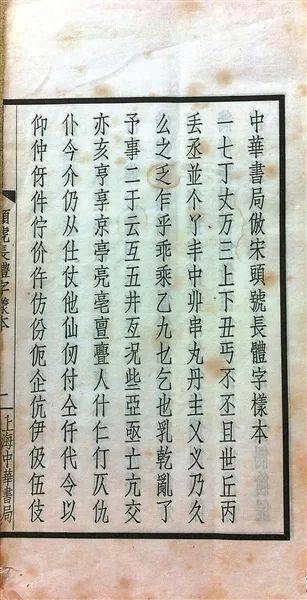 中華書局倣宋頭號長體字樣本
一七丁丈万三上下丑丐不丕且世丘丙
丟丞並个丫丰中丱串丸丹主乂义乃久
么之乏乍乎乖乘乙九乜乞也乳乾亂了
予事二于云互五井亙況些亞亟亡亢交
亦亥亨享京亭亮亳亶亹人什仁仃仄仇
仆今介仍从仕仗他仙仞付仝仟代令以
仰仲伢件佇价仵仿份企伉伊伋伍伎
頭號長體字樣本
二
上海中華書局